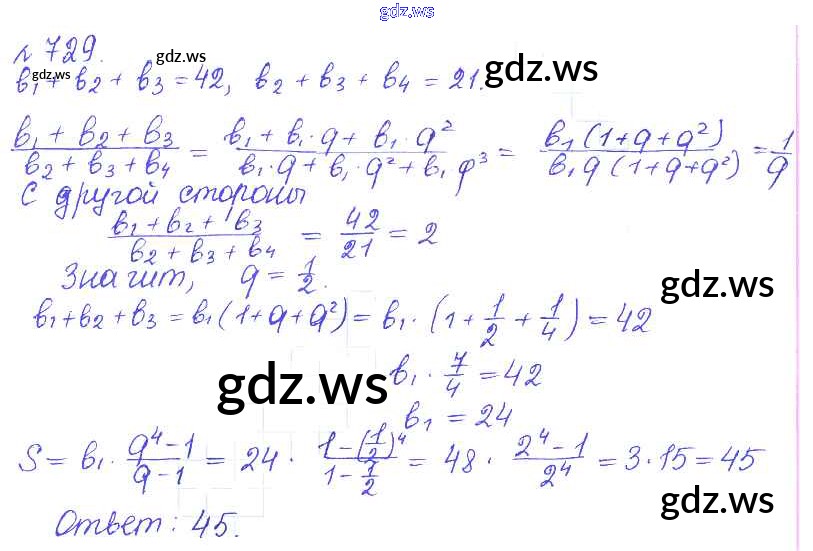 gdz.ws
№ 729. gdz.ws
gdz.ws
b₁ + b₂ + b₃ = 42, b₂ + b₃ + b₄ = 21. gdz.ws
(b₁ + b₂ + b₃)/(b₂ + b₃ + b₄) = (b₁ + b₁·q + b₁·q²)/(b₁·q + b₁·q² + b₁q³) = (b₁(1+q+q²))/(b₁q(1+q+q²)) = 1/q
С другой стороны
(b₁ + b₂ + b₃)/(b₂ + b₃ + b₄) = 42/21 = 2
Значит, q = 1/2. gdz.ws
b₁+b₂+b₃ = b₁(1+q+q²) = b₁·(1 + 1/2 + 1/4) = 42
gdz.ws b₁ · 7/4 = 42
b₁ = 24
S = b₁· (q⁴-1)/(q-1) = 24 · (1-(1/2)⁴)/(1-1/2) = 48 · (2⁴-1)/2⁴ = 3·15 = 45
gdz.ws
Ответ: 45.